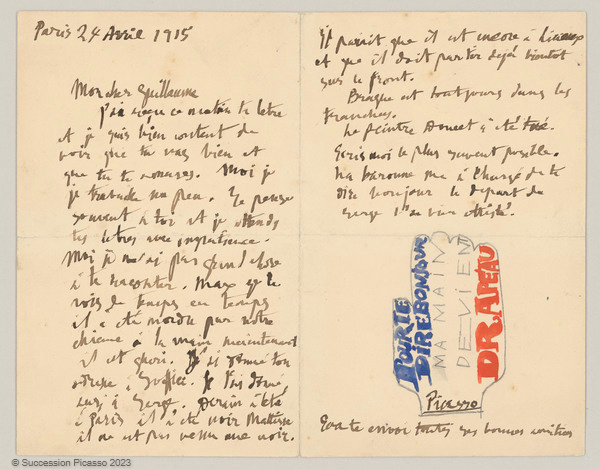 Paris 24 Avril 1915
Mon cher Guillaume
J'ai reçu ce matin ta letre
et je suis bien content de
voir que tu vas bien et
que tu te Moi je
je travaille un peu. Je pense
souvent à toi et je attends
tes letres avec impatience.
Moi je n'ai pas grand chose
à te raconter. Max je le
vois de temps en temps
il a eté mordu par notre
chienne à la main maintenant
il est gueri. J'ai donné ton
adresse à Je l'ai donné
aussi à Serge. Derain à eté
à Paris il à eté voir Matisse
il ne est pas venu me voir.
Il parait que il est encore à Lisieux
et que il doit partir dejà bientot
sur le front.
Braque est toujours dans les
tranchées.
Le peintre Doucet à eté tué.
Ecris moi le plus souvent possible.
La baronne me à chargé de te
dire bonjour le depart de
Serge
POUR TE
DIRE BONJOUR
MA MAIM
DEVIEN
DRAPEAU
Picasso
Eva te envoi toutes ses bonnes amitiés
© Succession Picasso 2023